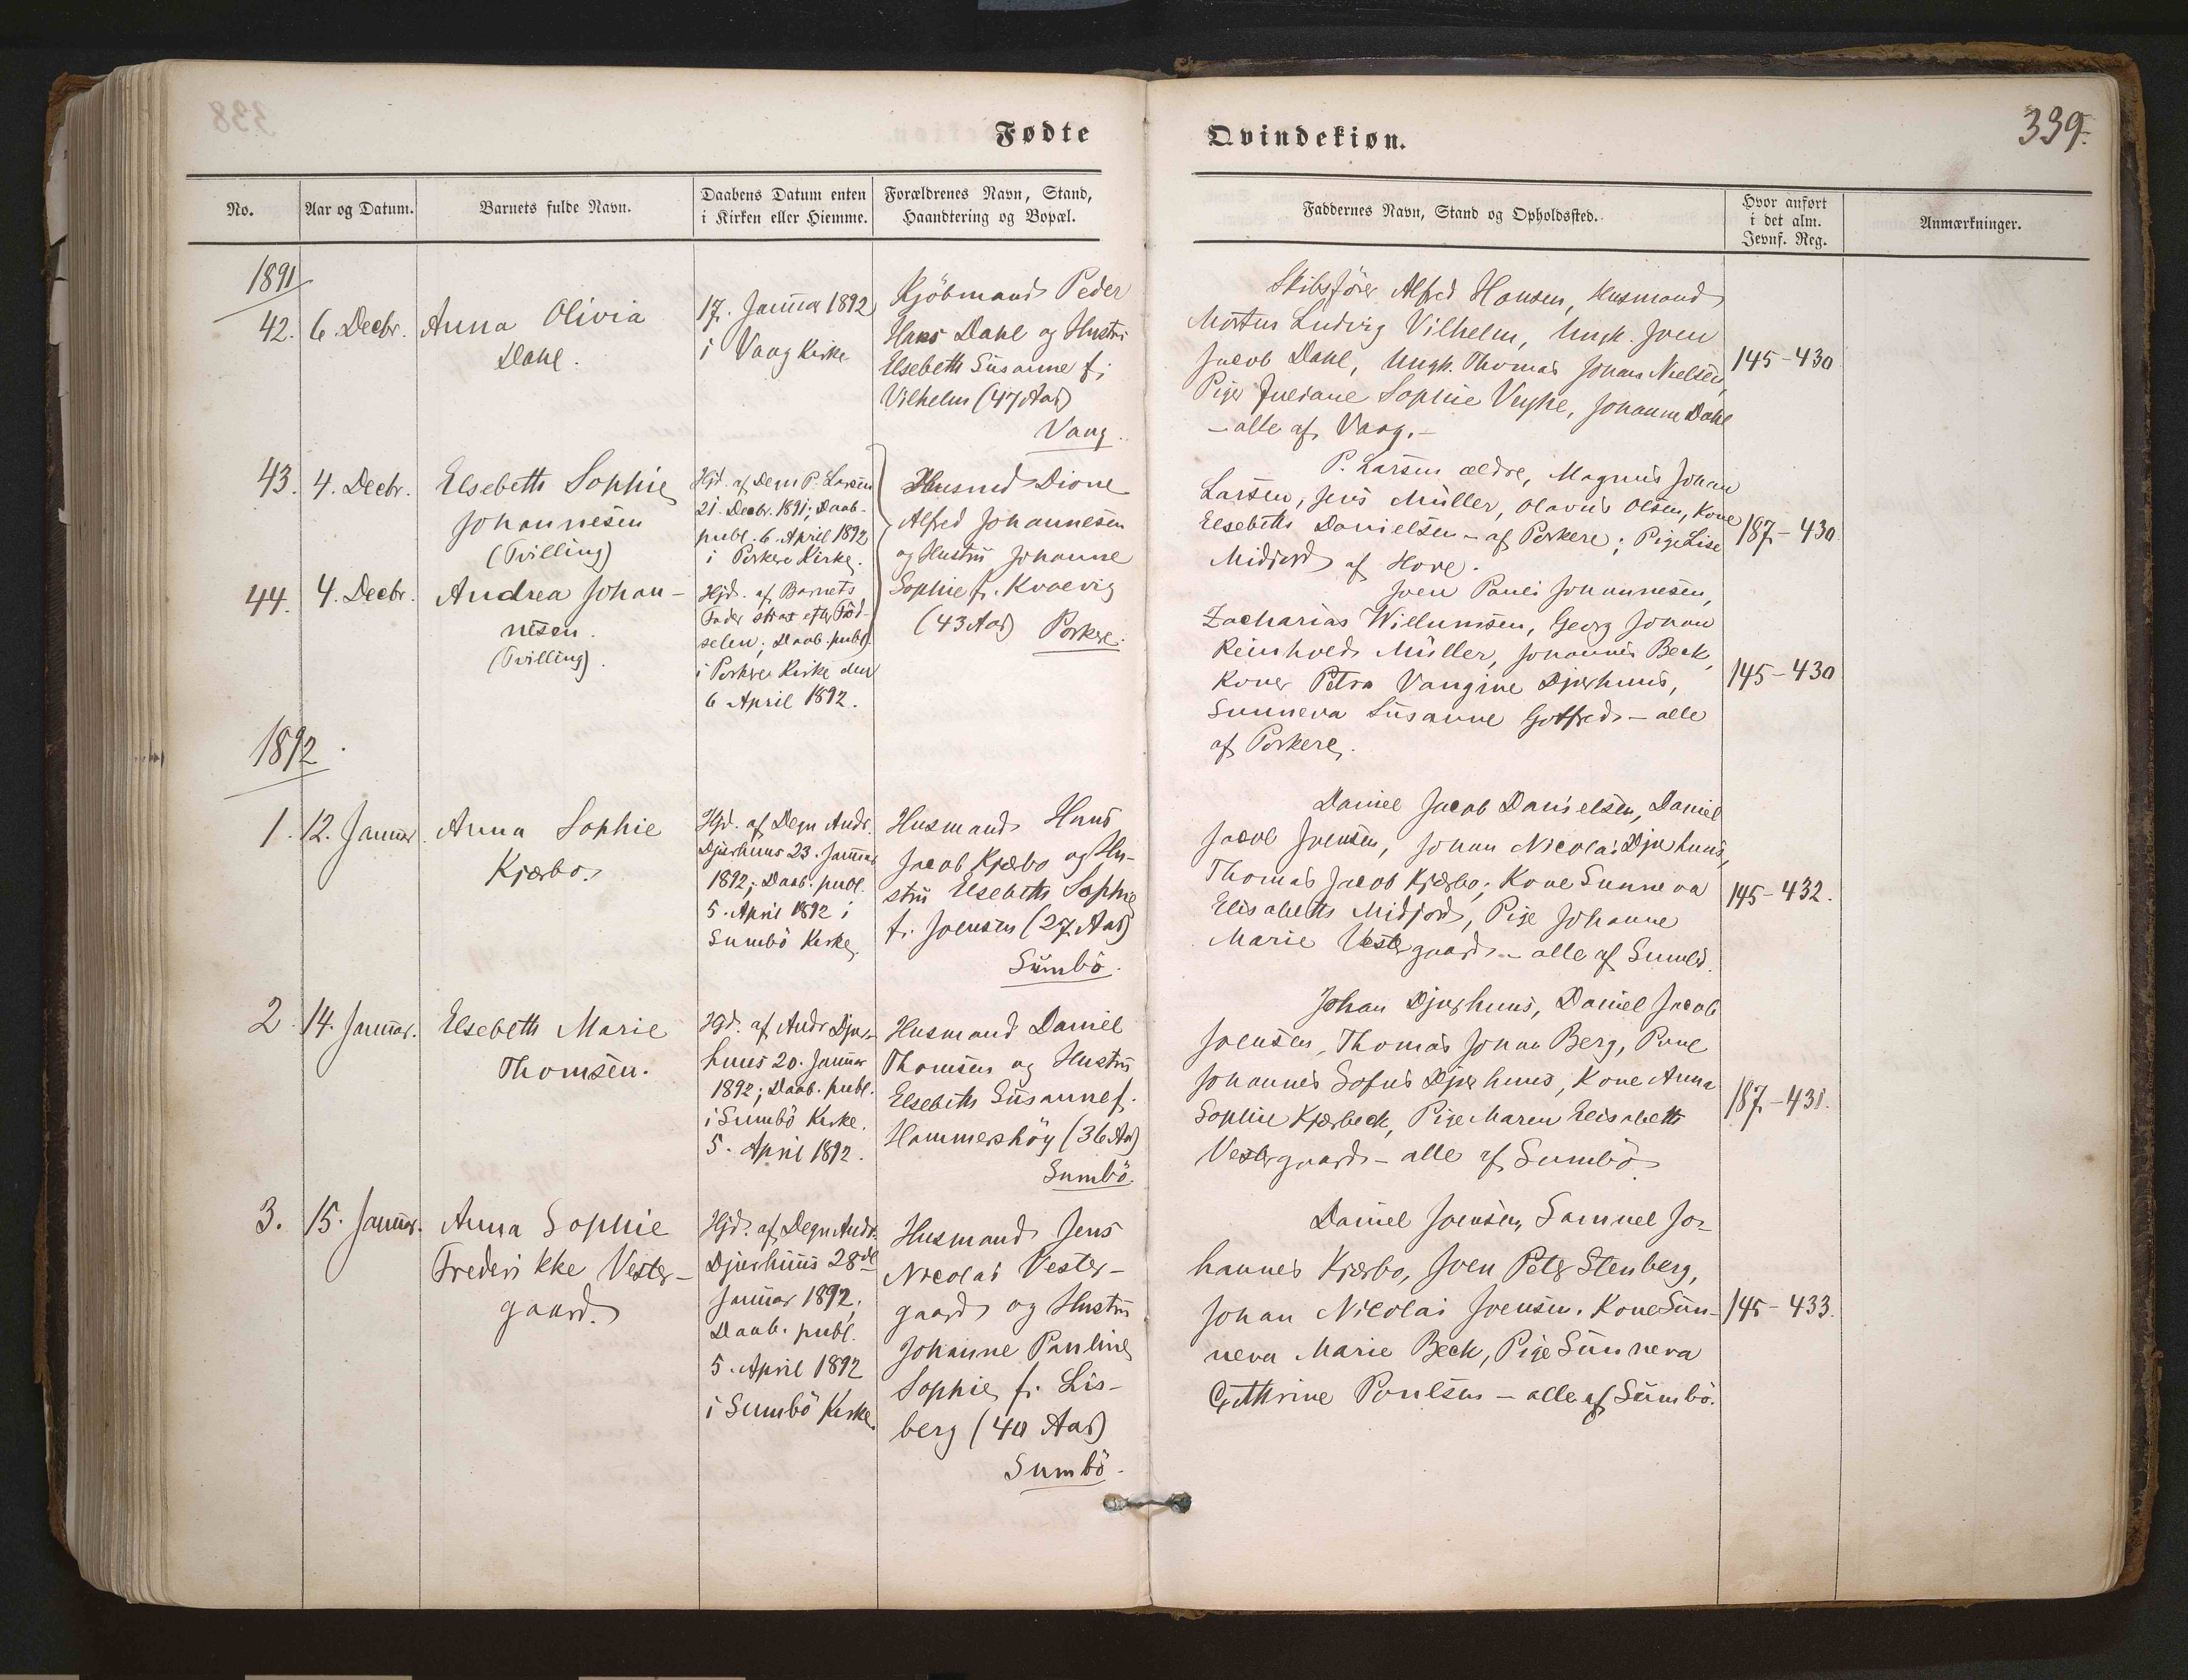 Fødte
Qvindekiøn.
339.
No.
Aar og Datum.
Barnets fulde Navn.
Daabens Datum enten
i Kirken eller Hiemme.
Forældrenes Navn, Stand,
Haandtering og Bopæl.
Faddernes Navn, Stand og Opholdssted.
Hvor anført
i det alm.
Jevnf. Reg.
Anmærkninger.
1891
42.
6. Decbr.
Anna Olivia
Dahl.
17. Januar 1892
i Vaag Kirke
Kjöbmand Peder
Hans Dahl og Hustru
Elsebeth Susanne f.
Vilhelm (47 Aar)
Vaag.
Skibsfører Alfred Hansen, Husmand
Mortus Ludvig Vilhelm, Ungk. Joen
Jacob Dahl, Ungk. Thomas Johan Nielsen,
Piger Juliane Sophie, Johanne Dahl
- alle af Vaag. -
145-430
43.
4. Decbr.
Elsebeth Sophie
Johannesen
(Tvilling)
Hjd. af Degn P. Larsen
21. Decbr. 1891; Daab.
publ. 6. April 1892
i Porkere Kirke.
Husmd Dione
Alfred Johannesen
og Hustru Johanne
Sophie f. Kvævig
(43 Aar) Porkere.
P. Larsen ældre, Magnus Johan
Larsen, Jens Müller, Olavus Olsen, Kone
Elsebeth Danielsen - af Porkere; Pige Lise
Midjord af Hove.
187-430.
44.
4. Decbr.
Andrea Johan-
nesen.
(Tvilling).
Hjd. af Barnets
Fader strax efter Föd-
selen; Daab. publ.
i Porkere Kirke den
6 April 1892.
Joen Pauli Johannesen,
Zacharias Willumsen, Georg Johan
Reinhold Müller, Johannes Beck,
Koner Petra Vangine Djurhuus,
Sunneva Susanne Gotfred - alle
af Porkere.
145-430
1892.
1.
12. Januar.
Anna Sophie
Kjærbo.
Hjd. af Degn Andr.
Djurhuus 23. Januar
1892; Daab. publ.
5. April 1892 i
Sumbö Kirke
Husmand Hans
Jacob Kjærbo og Hu-
stru Elsebeth Sophie
f. Joensen (27 Aar)
Sumbö.
Daniel Jacob Danielsen, Daniel
Jacob Joensen, Johan Nicolai Djurhuus,
Thomas Jacob Kjærbo; Kone Sunneva
Elisabeth Midjord, Pige Johanne
Marie Vestergaard. - alle af Sumbö.
145-432.
2.
14. Januar.
Elsebeth Marie
Thomsen.
Hjd. af Andr. Djur-
huus 20. Januar
1892; Daab. publ.
i Sumbö Kirke.
5. April 1892.
Husmand Daniel
Thomsen og Hustru
Elsebeth Susanne f.
Hammershöy (36 Aar)
Sumbö.
Johan Djurhuus, Daniel Jacob
Joensen, Thomas Johan Berg, Poul
Johannes Sofus Djurhuus, Kone Anna
Sophie Kjærbeck, Pige Maren Elisabeth
Vestergaard - alle af Sumbö.
187-431.
3.
15. Januar.
Anna Sophie
Frederikke Vester-
gaard.
Hjd. af Degn Andr.
Djurhuus 28de
Januar 1892;
Daab. publ.
5. April 1892
i Sumbö Kirke.
Husmand Jens
Nicolai Vester-
gaard og Hustru
Johanne Pauline
Sophie f. Lis-
berg (40 Aar)
Sumbö.
Daniel Joensen, Samuel Jo-
hannes Kjærbo, Joen Peter Stenberg,
Johan Nicolai Joensen. Kone Sun-
neva Marie Beck, Pige Sunneva
Cathrine Poulsen - alle af Sumbö.
145-433.